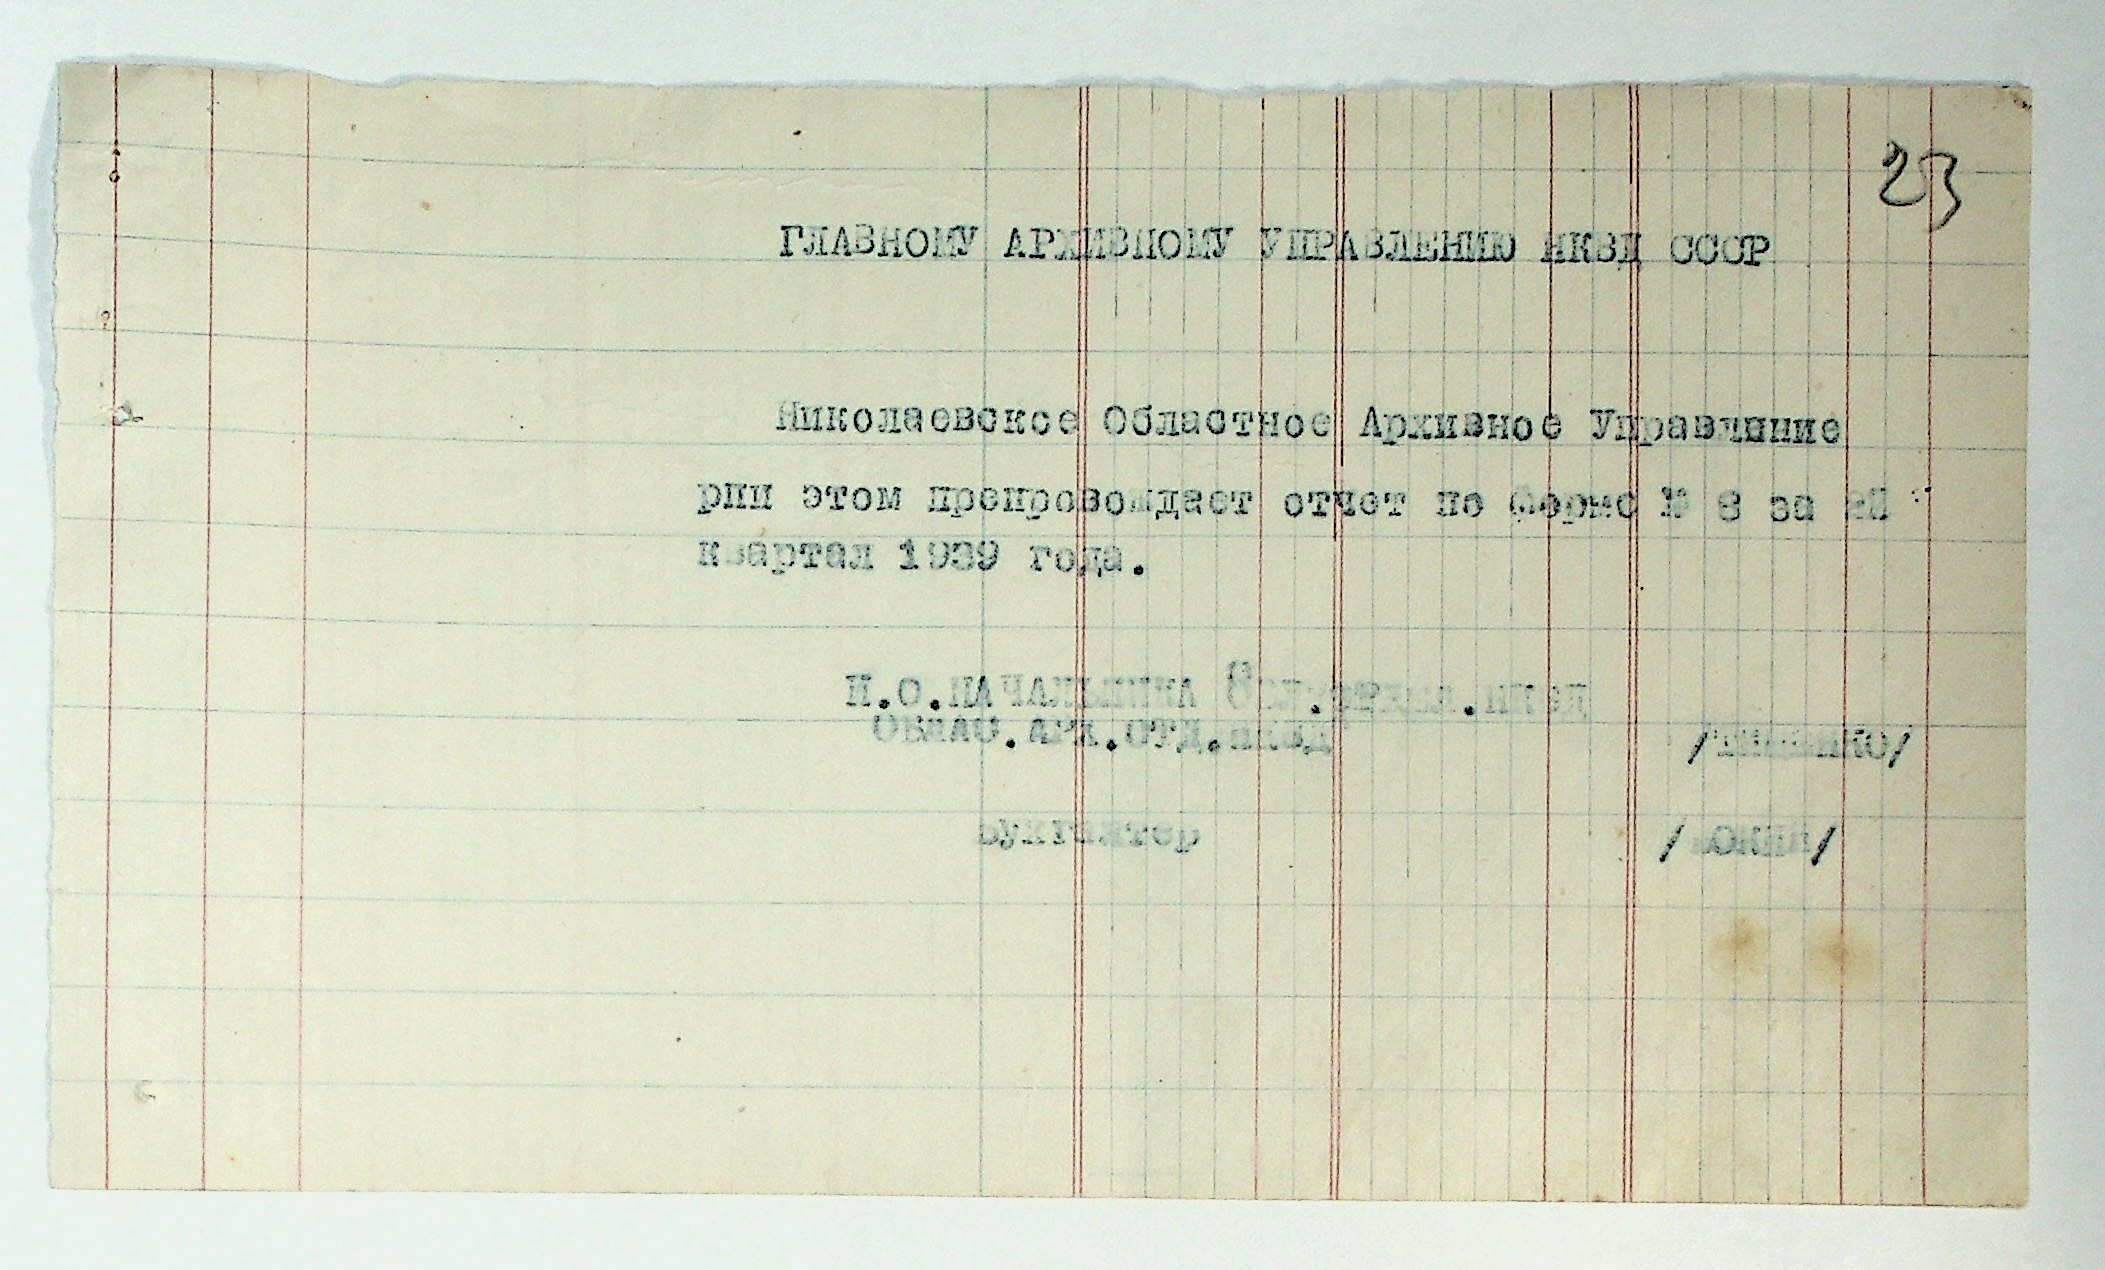 23
ГЛАВНОМУ АРХИВНОМУ УПРАВЛЕНИЮ НКВД СССР
Николаевское Областное Архивное Управление
рпи этом препровождает отчет по форме № 8 за
квартал 1939 года.
И.О.НАЧАЛЬНИКА
ОБЛАС.АРХ.ОТД.НКВД
Бухгалтер